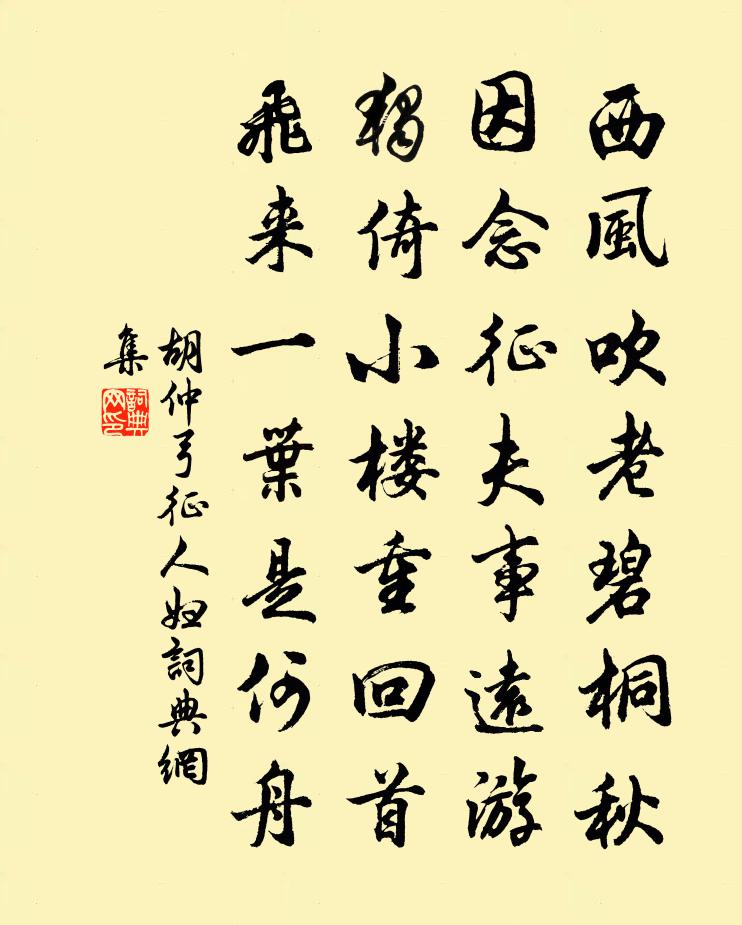 西風吹老碧桐秋
因念征夫事遠游
獨倚小楼重回首
飛来一葉是何舟
胡仲弓征人妇詞典網
集
詞典
网印